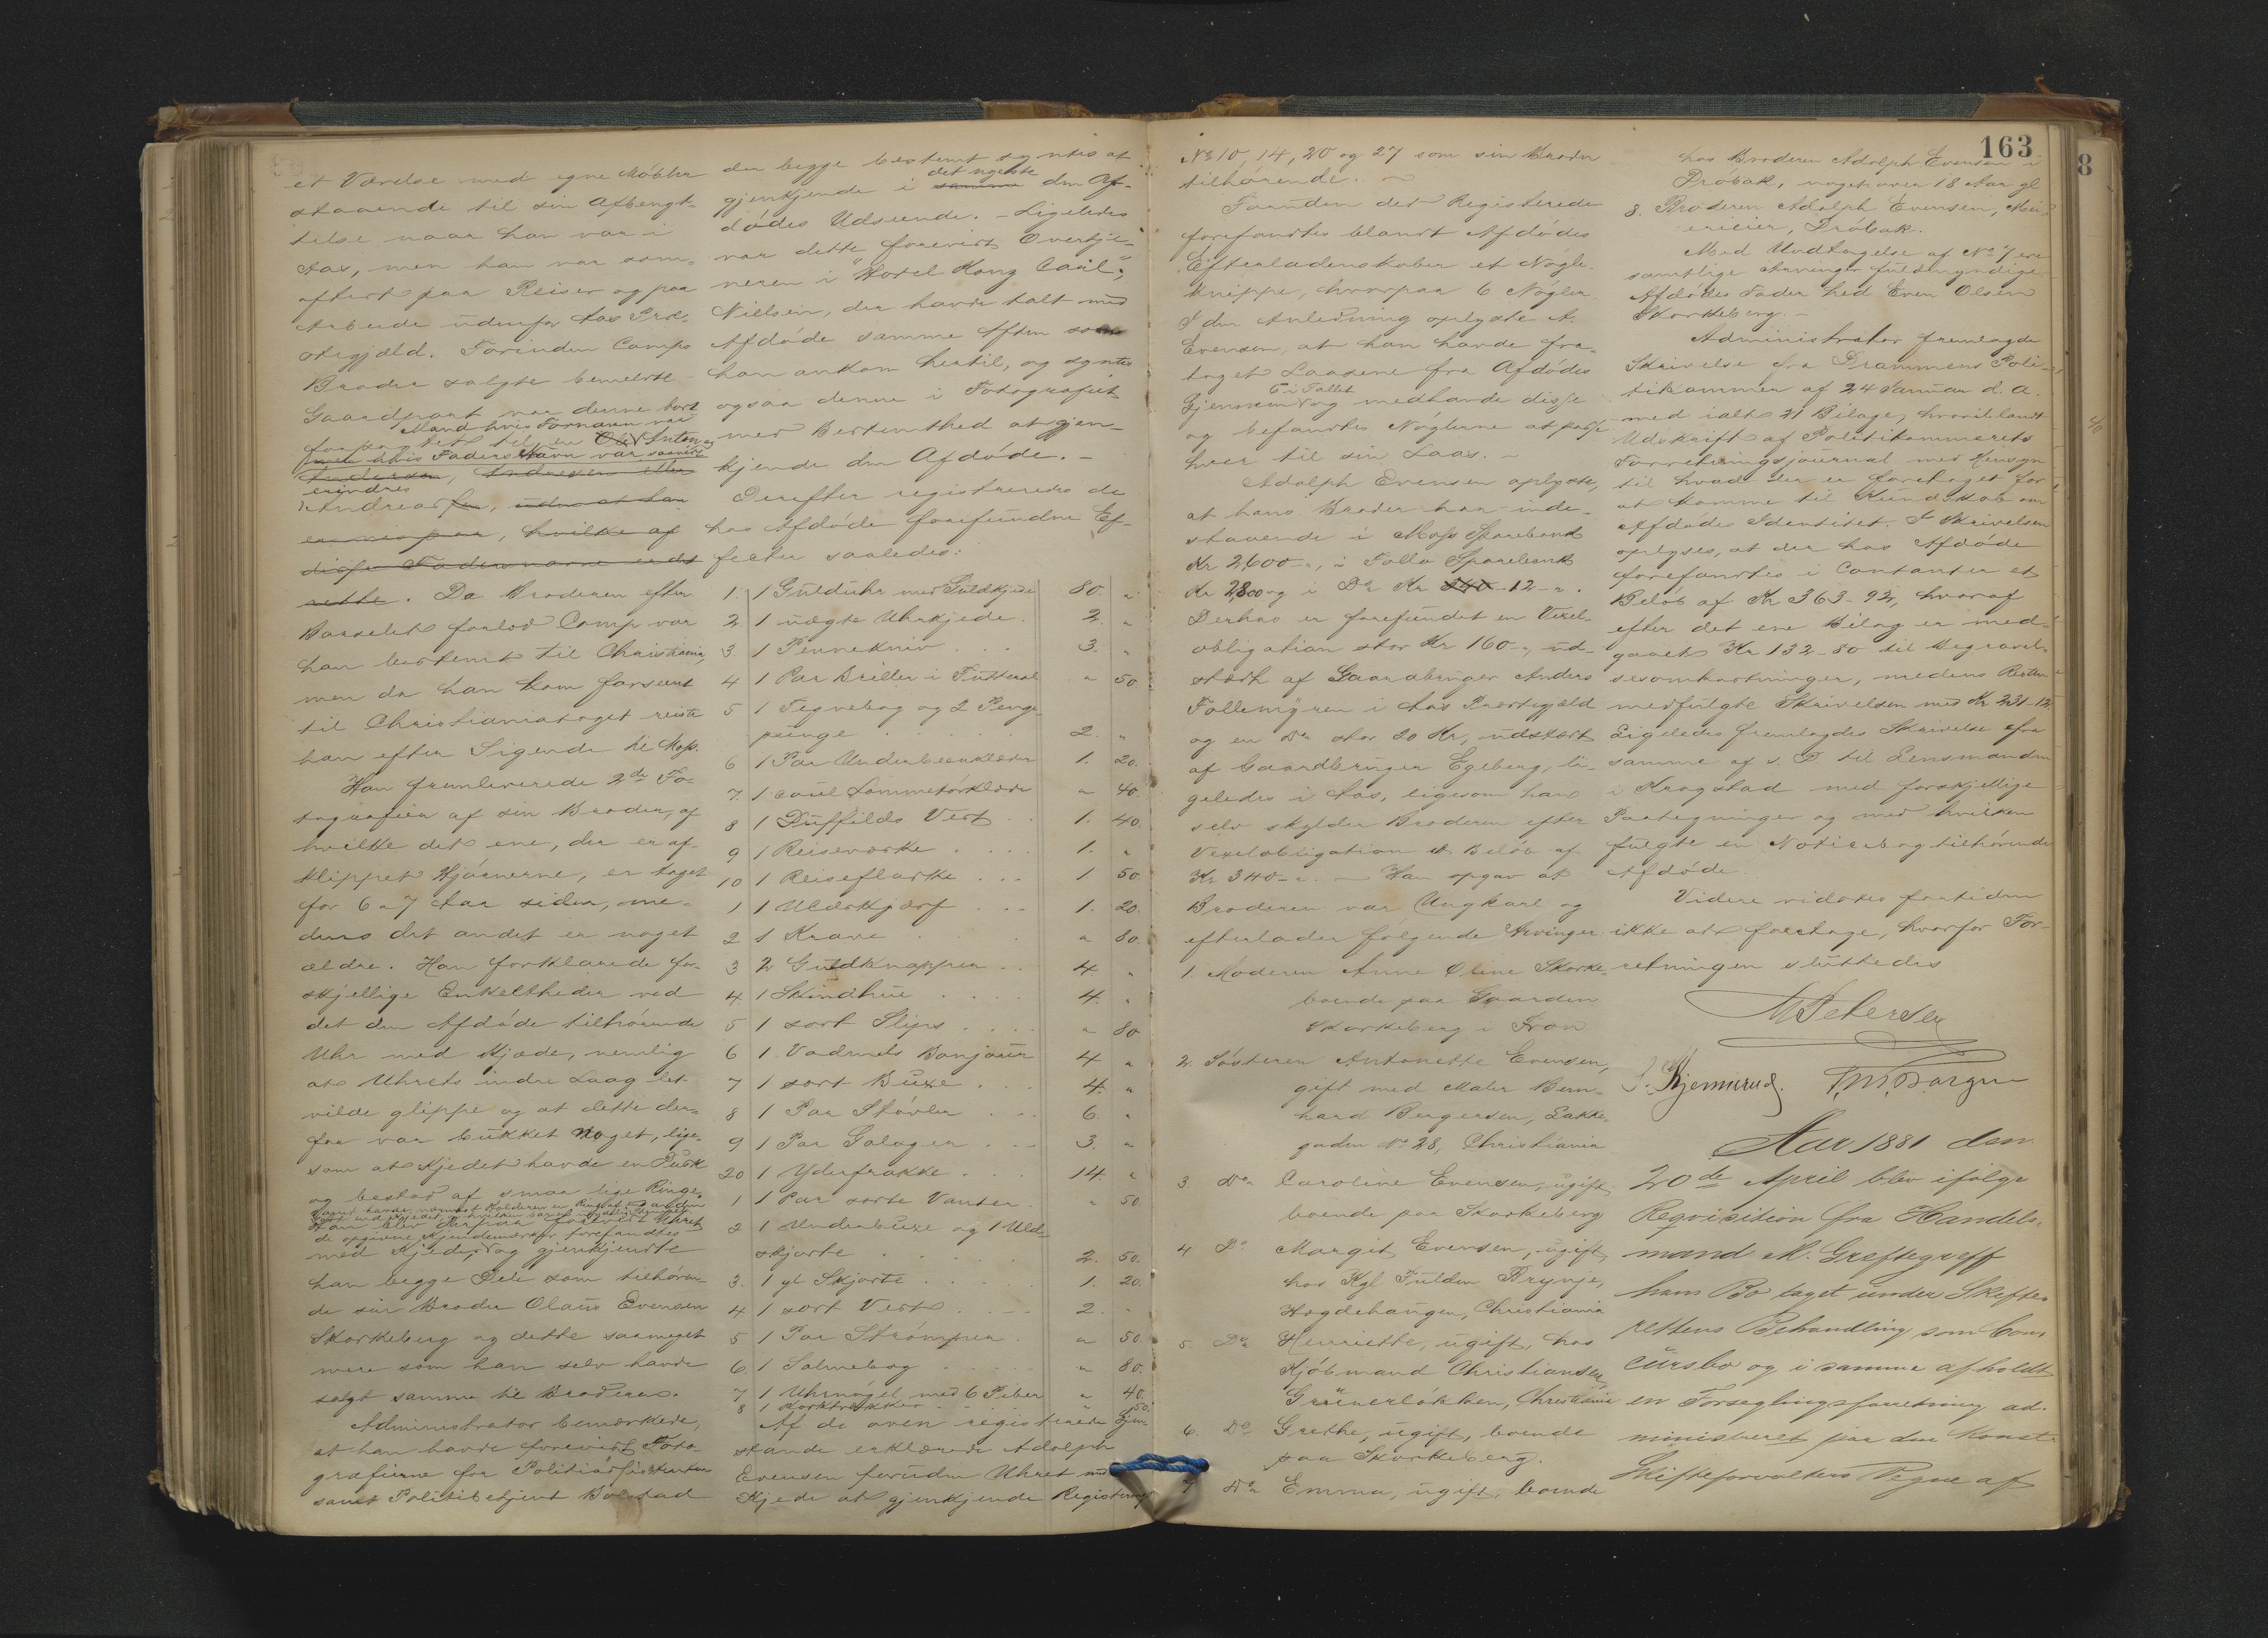 et Værelse med egne Møbler
staaende til sin Afbenyt-
telse naar han var i
Aas, men han var som-
oftest paa Reiser og paa
Arbeide udenfor Aas Præ-
stegjæld. Forinden Comps
Broder solgte bemeldte
Gaardpart var denne bort
Mand hvis Fornavn var
forpagtet til en Anton og
hvis Faders Navn var saavidt
Andersen, Andresen eller
erindres
Andreas sen, uden at han
, hvilke af
disse Fadernavne er det
rette. Da Broderen efter
Barselet forlod Comp var
han bestemt til Christiania,
men da han kom forseent
til Christianiatoget reiste
han efter Sigende til Moss.
Han fremleverede 2de Fo-
tografier af sin Broder, af
hvilke det ene, der er af-
klippet Hjørnerne, er taget
for 6 a 7 Aar siden, me-
dens det andet er noget
ældre. Han forklarede for-
skjellige Enkeltheder ved
det den Afdøde tilhørende
Uhr med Kjæde, nemlig
at Uhrets indre Laag let
vilde glippe og at dette der-
for var bukket noget, lige-
som at Kjedet havde en Dusk
og bestod af smaa lige Ringe.
Han blev derpaa forevist Uhret
de opgivne Kjendemærker forefandtes
med Kjede, og gjenkjendte
han begge Dele som tilhøren-
de sin Broder Olaus Evensen
Skorkeberg og dette saameget
mere som han selv havde
solgt samme til Broderen.
Administrator bemærkede,
at han havde forevist Foto-
grafierne for Politiassistenten
samt Politibetjent Bolstad
der begge bestemt syntes at
det nyeste
gjenkjende i samme den Af-
dødes Udseende. - Ligeledes
var dette forevist Overtje-
neren i "Hotel Kong Carl",
Nielsen, der havde talt med
Afdøde samme Aften som
han ankom hertil, og syntes
ogsaa denne i Fotografiet
med Bestemthed at gjen-
kjende den Afdøde. -
Derefter registreredes de
hos Afdøde forefundne Ef-
fecter saaledes:
1. 1 Gulduhr med Guldkjede 80. "
2 1 uægte Uhrkjede. 2. "
3. 1 Pennekniv 3. "
4 1 Par Briller i Futteral " 50
5 1 Tegnebog og 2 Penge-
punge 2. "
6 1 Par Underbeenklæder 1. 20.
7. 1 couil Lommetørklæde " 40.
8 1 Duffilds Vest 1. 40.
9 1 Reiseværke 1. "
10 1 Reiseflaske 1. 50.
1 1 Uldskjærf 1. 20.
2 1 Krave " 80.
3 2 Guldknapper 4 "
4. 1 Skindhue 4. "
5 1 sort Slips " 80
6 1 Vadmels Bonjour 4 "
7 1 sort Buxe 4. "
8 1 Par Støvler 6. "
9 1 Par Galoger 3. "
20 1 Yderfrakke 14. "
1 1 Par sorte Vanter " 50.
2 1 Underbuxe og 1 Uld-
skjorte 2. 50.
3. 1 gl Skjorte 1. 20.
4 1 sort Vest 2. "
5 1 Par Strømper " 50.
6. 1 Salmebog " 80.
7 1 Uhrnøgel med 6 Piber " 40.
8 1 Korktrækker " 50.
Af de oven registrerede Gjen-
stande erklærede Adolph
Evensen foruden Uhret med
Kjede at gjenkjende Registerings
No 10, 14, 20 og 27 som sin Broder
tilhørende. -
Foruden det Registrerede
forefandtes blandt Afdødes
Efterladenskaber et Nøgle-
knippe, hvorpaa 6 Nøgler.
I den Anledning oplyste A.
Evensen, at han havde fra-
taget Laasene fra Afdødes
6 i Tallet
Gjemmer og medhavde disse
og befandtes Nøglerne at passe
hver til sin Laas. -
Adolph Evensen oplyste,
at hans Broder har inde-
staaende i Moss Sparebank
Kr 2600-", i Follo Sparebank
Kr 2,800 og i Do Kr 12-".
Derhos er forefundet en Vexel-
obligation stor Kr 160-", ud-
stedt af Gaardbruger Anders
Follemyren i Aas Præstegjæld
og en Do stor 20 Kr, udstedt
af Gaardbruger Egeberg, li-
geledes i Aas, ligesom han
selv skylder Broderen efter
Vexelobligation et Beløb af
Kr 340-". - Han opgav at
Broderen var Ungkarl og
efterlader følgende Arvinger:
1. Moderen Anne Oline Skorke-
boende paa Gaarden
Skorkeberg i Fron
2. Søsteren Antonette Evensen,
gift med Maler Bern-
hard Bergersen, Lakke-
gaden No 28, Christiania
3. Do Caroline Evensen, ugift,
boende paa Skorkeberg
4 Do Margit Evensen, ugift,
hos Kgl Fuldm Brynje,
Hegdehaugen, Christiania
5. Do Henriette, ugift, hos
Kjøbmand Christiansen,
Grünerløkken, Christiania
6. Do Grethe, ugift, boende
paa Skorkeberg.
7 Do Emma, ugift, boende
163
hos Broderen Adolph Evensen i
Drøbak, noget over 18 Aar gl
8. Broderen Adolph Evensen, Mei-
erieier, Drøbak.
Med Undtagelse af No 7 ere
samtlige Arvinger fuldmyndige
Afdødes Fader hed Even Olsen
Skorkeberg. -
Administrator fremlagde
Skrivelse fra Drammens Poli-
tikammer af 24 Januar d. A.
med ialt 21 Bilage, hvoriblandt
Udskrift af Politikammerets
Forretningsjournal med Hensyn
til hvad der er foretaget for
at komme til Kundskab om
Afdødes Identitet. I Skrivelsen
oplyses, at der hos Afdøde
forefandtes i Contanter et
Beløb af Kr 363-92, hvoraf
efter det ene Bilag er med-
gaaet Kr 132-80 til Begravel-
sesomkostninger, medens Resten
medfulgte Skrivelsen med Kr 231-12.
Ligeledes fremlagdes Skrivelse fra
samme af s. D. til Lensmanden
i Kragstad med forskjellige
Paategninger og med hvilken
fulgte en Notitsbog tilhørende
Afdøde
Videre vidstes fortiden
ikke at foretage, hvorfor For-
retningen sluttedes
M Petersen
Kjemmerud.
Aar 1881 den
20de April blev ifølge
Reqvisition fra Handels-
mand M. Greftegreff
hans Bo taget under Skifte-
rettens Behandling som Con-
cursbo og i samme afholdt
en Forseglingsforretning ad-
ministreret paa den Konst.
Skifteforvalters Vegne af
8